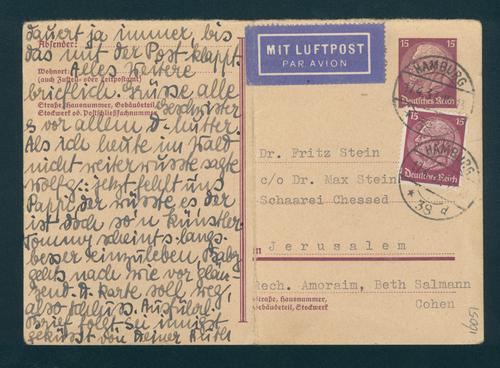 dauert ja immer, bis
das mit der Post klappt.
Alles Weitere
brieflich. Grüsse alle
Geschwister
vor allem D. Mutter.
Als ich heute im Wald
nicht weiterwusste sagte
Wolfg.: jetzt fehlt uns
Pappi, der wüsste es, der
ist doch so'n Künstler.
Tommy scheint s. langs.
besser einzuleben, Baby
gehts nach wie vor glän-
zend. D. Karte soll weg,
also Schluss. Ausführl.
Brief folgt. Sei innigst
geküsst von Deiner Ruth
Absender:
Wohnort
(auch Zustell- oder Leitpostamt)
Straße, Hausnummer, Gebäudeteil,
Stockwerk od. Postschließfachnummer
MIT LUFTPOST
PAR AVION
15 15
Deutsches Reich
HAMBURG
15 15
Deutsches Reich
HAMBURG
Dr. Fritz Stein
c/o Dr. Max Stein
Schaarei Chessed
in Jerusalem
Rech. Amoraim, Beth Salmann
Cohen
Straße, Hausnummer,
Gebäudeteil, Stockwerk